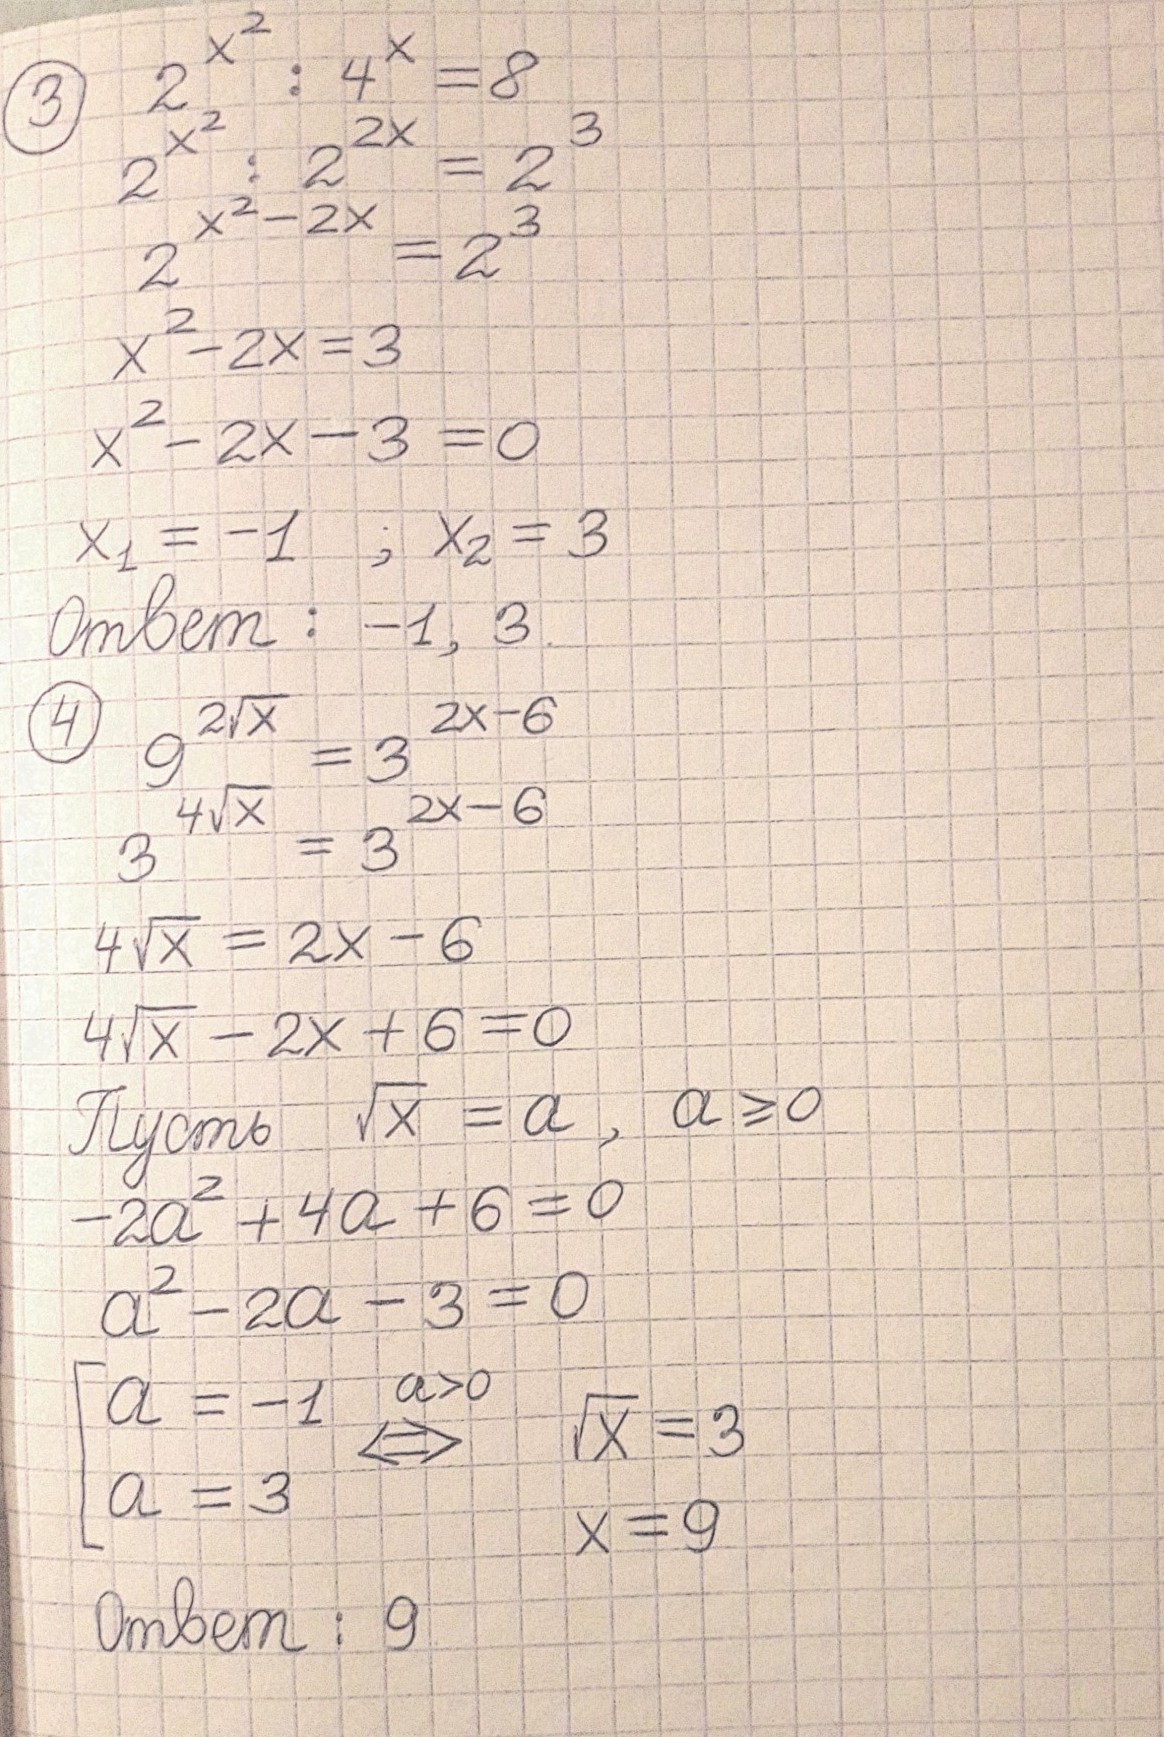 ③ 2^{x^2} : 4^x = 8
2^{x^2} : 2^{2x} = 2^3
2^{x^2-2x} = 2^3
x^2 - 2x = 3
x^2 - 2x - 3 = 0
x_1 = -1 ; x_2 = 3
Ответ : -1, 3.
④ 9^{2√x} = 3^{2x-6}
3^{4√x} = 3^{2x-6}
4√x = 2x - 6
4√x - 2x + 6 = 0
Пусть √x = a, a ⩾ 0
-2a^2 + 4a + 6 = 0
a^2 - 2a - 3 = 0
[ a = -1 a>0 ⟺ √x = 3
a = 3 x = 9
Ответ : 9